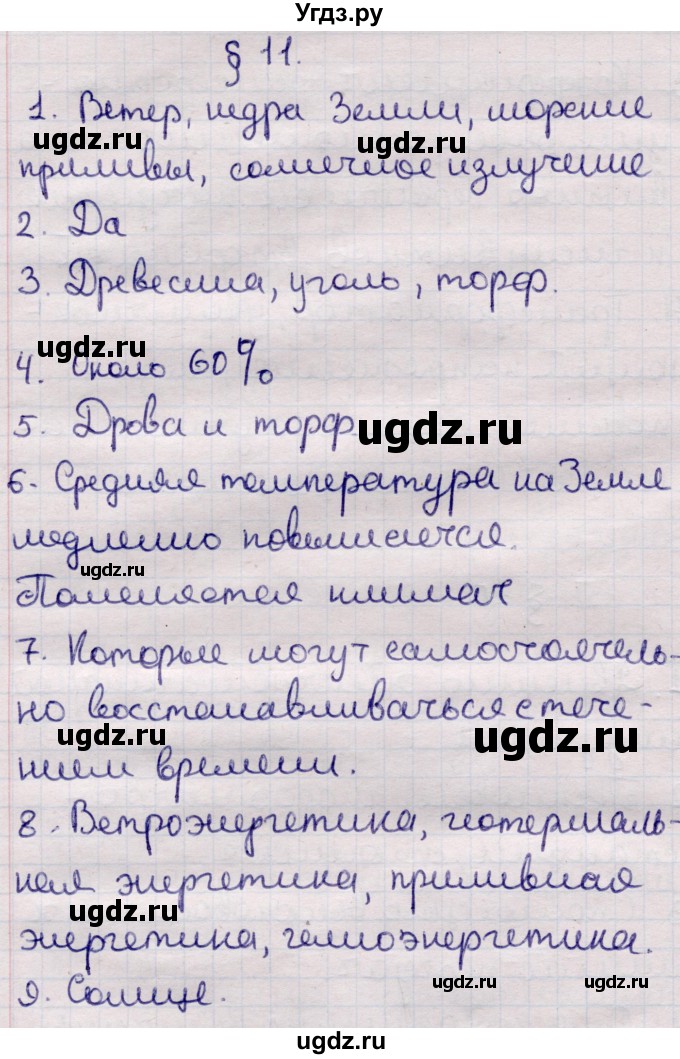 Угдз.ру
§ 11.
1. Ветер, недра Земли, морские
ugdz.ru
ugdz.ru
приливы, солнечное излучение
2. Да
3. Древесина, уголь, торф.
ugdz.ru
4. Около 60%
5. Дрова и торф
ugdz.ru
6. Средняя температура на Земле
медленно повышается.
ugdz.ru
Поменяется климат
7. Которые могут самостоятель-
но восстанавливаться с тече-
ugdz.ru
ugdz.ru
нием времени.
8. Ветроэнергетика, геотермаль-
ная энергетика, приливная
ugdz.ru
энергетика, гелиоэнергетика.
9. Солнце.
ugdz.ru
ugdz.ru